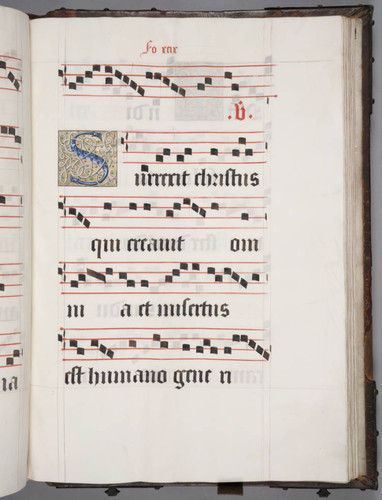 fo xcix
.v.
Surrexit christus
qui creauit om
ni a et misertus
est humano gene ri
na